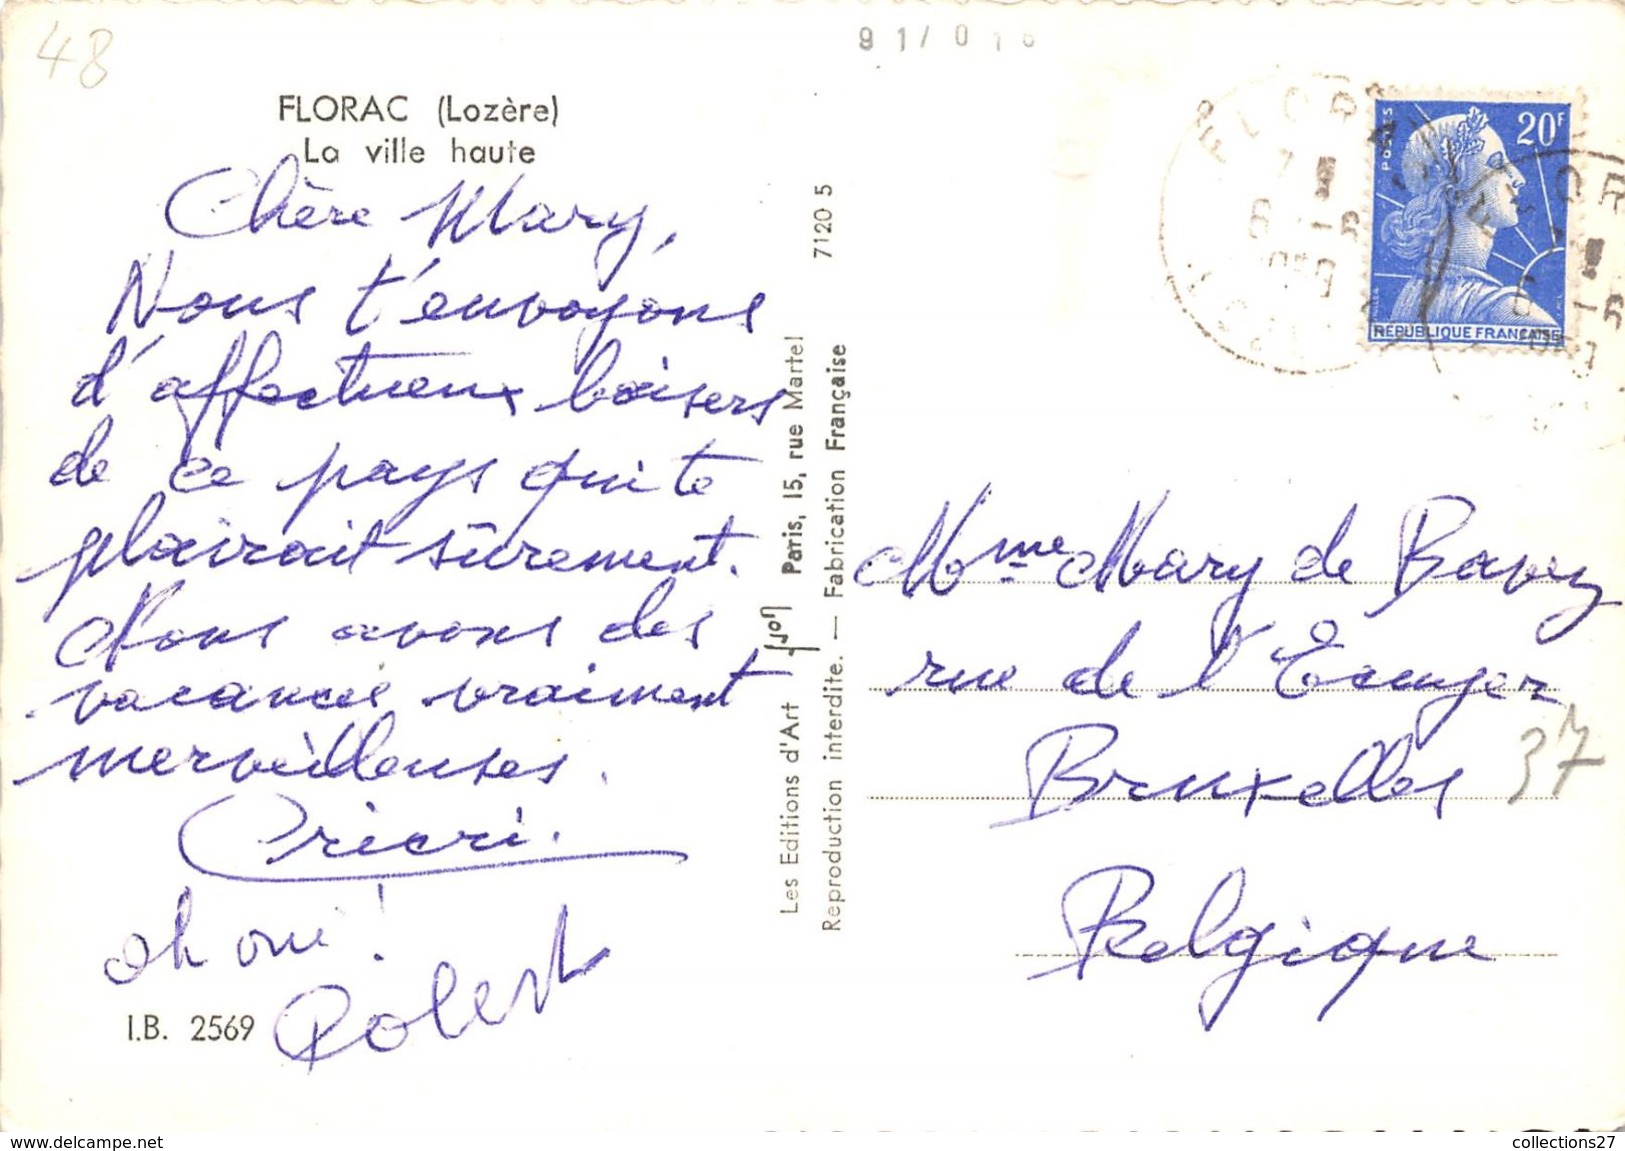 48
91/018
FLORAC (Lozère)
La ville haute
Chère Mary,
Nous t'envoyons
d'affectueux baisers
de ce pays qui te
plairait sûrement.
Nous avons des
vacances vraiment
merveilleuses.
Cricri.
oh oui !
Robert
I.B. 2569
Les Editions d'Art Paris, 15, rue Martel
Reproduction interdite. — Fabrication Française
7120 5
FLORAC
POSTES
20F
RÉPUBLIQUE FRANÇAISE
Mme Mary de
rue de l'Ecuyer
Bruxelles 37
Belgique
collections27